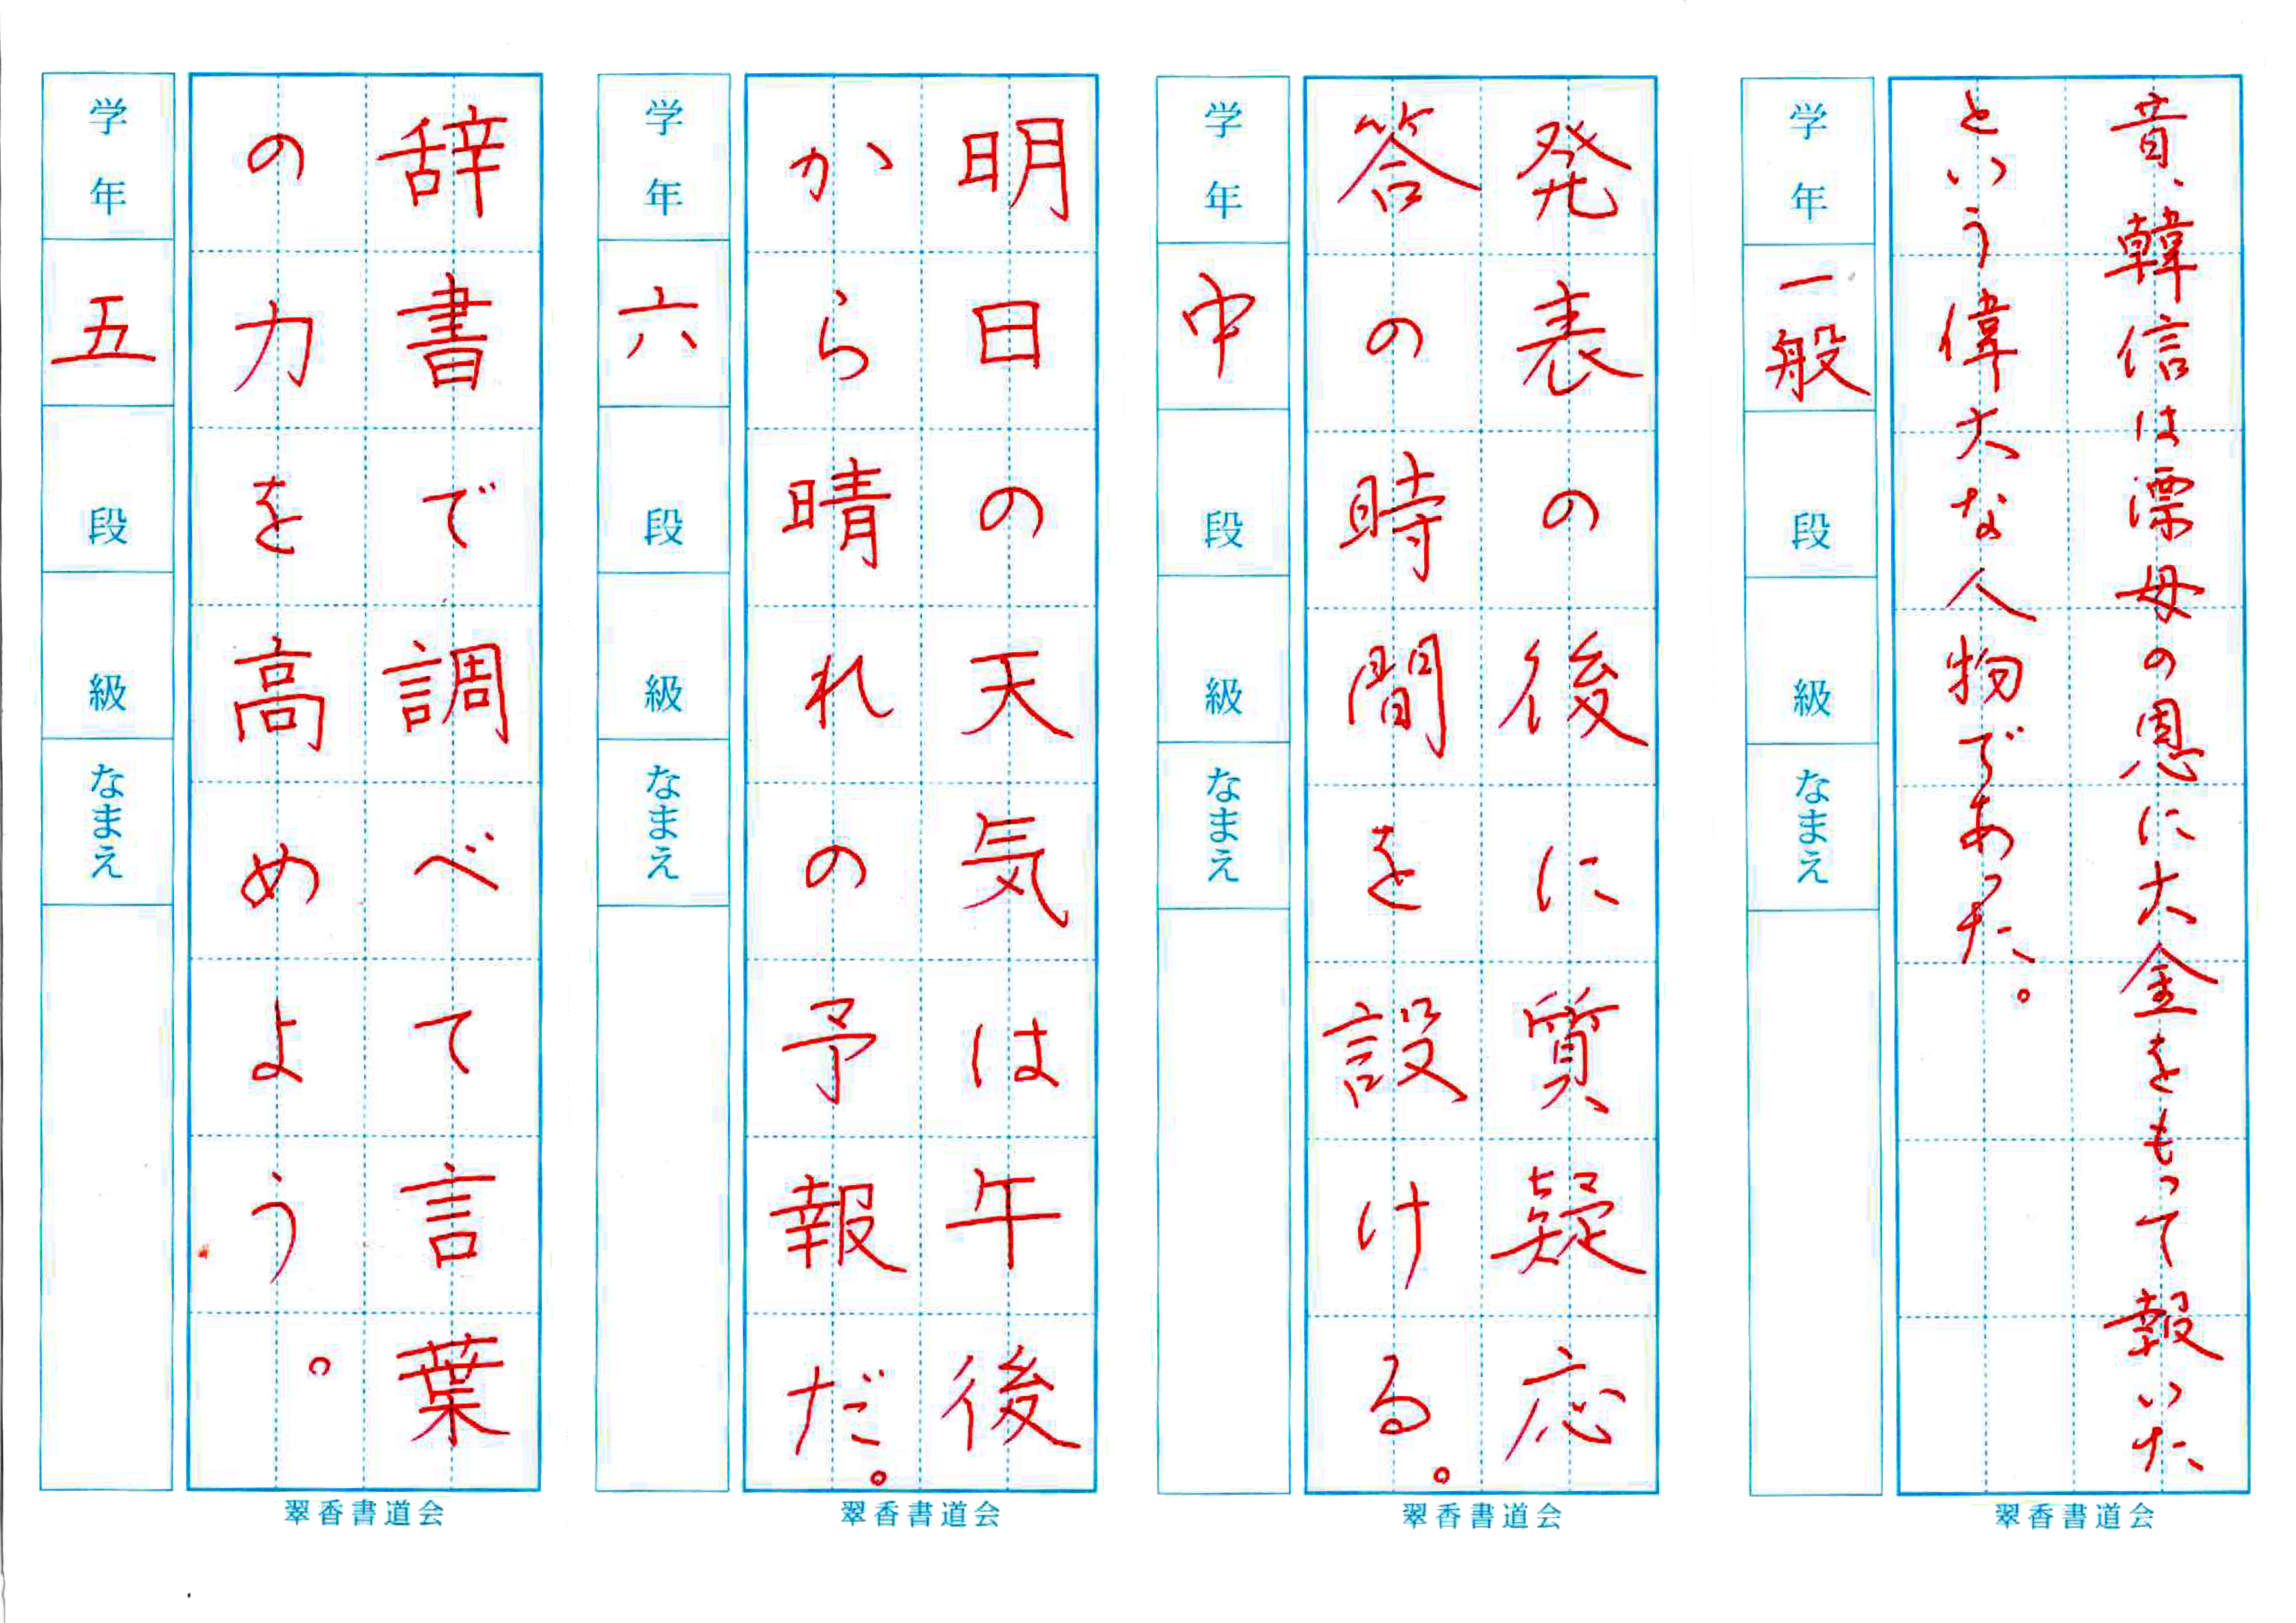 昔、韓信は漂母の恩に大金をもって報いた
という偉大な人物であった。
学年
一般
段
級
なまえ
翠香書道会
発表の後に質疑応
答の時間を設ける。
学年
中
段
級
なまえ
翠香書道会
明日の天気は午後
から晴れの予報だ。
学年
六
段
級
なまえ
翠香書道会
辞書で調べて言葉
の力を高めよう。
学年
五
段
級
なまえ
翠香書道会